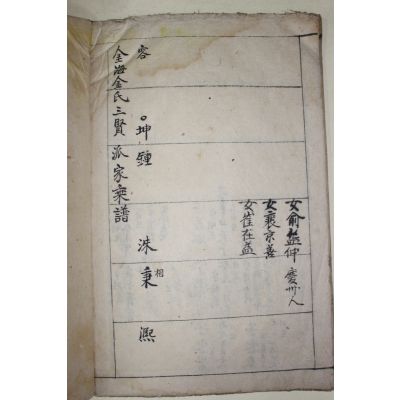 女俞益仲 慶州人
女裵京善
女崔在益
容 ○坤 鍾 洙 秉相 熙
金海金氏三賢派家乘譜